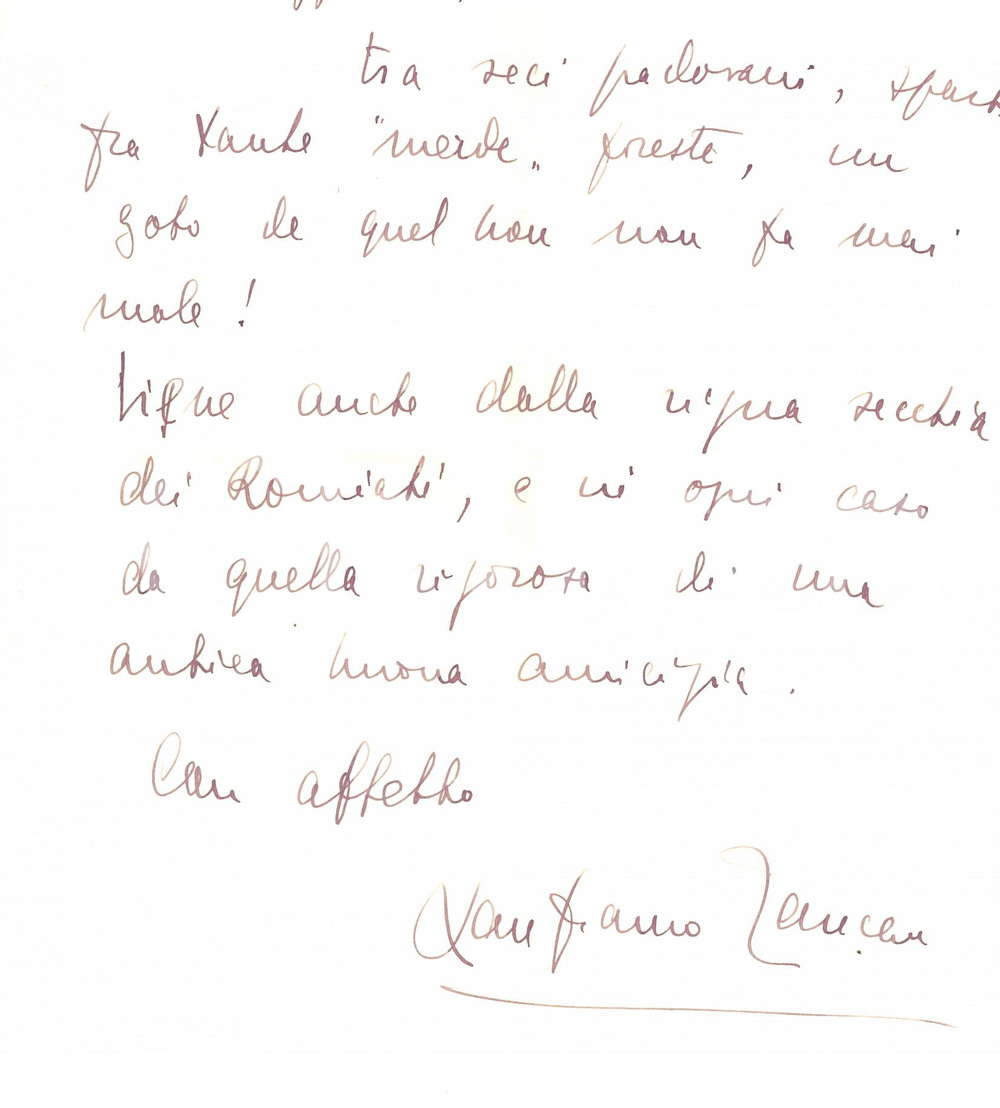 tra seci padovani, spars
fra tante "merde" foreste, un
goto de quel bon non fa mai
male!
anche dalla vigna vecchia
dei Romiati, e in ogni caso
da quella rigorosa di una
antica buona amicizia.
Con affetto
Lanfranco Zancan